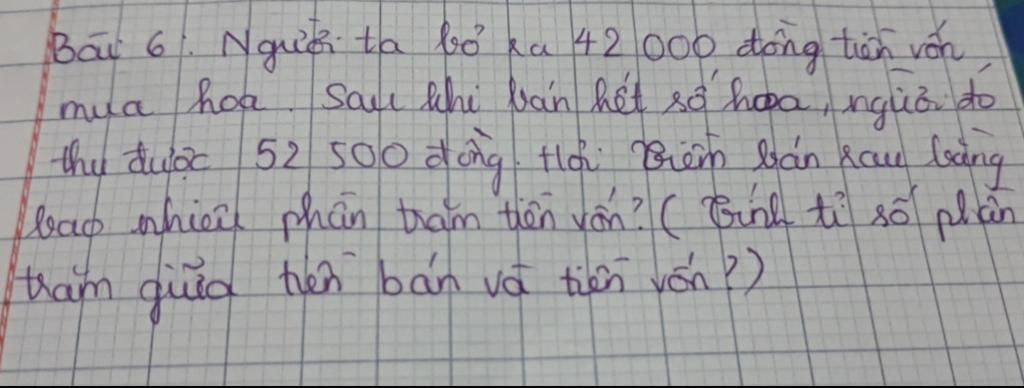 Bài 6. Người ta bỏ ra 42 000 đồng tiền vốn
mua hoa. Sau khi bán hết số hoa, người đó
thu được 52 500 đồng. Hỏi: Tiền bán rau bằng
bao nhiêu phần trăm tiền vốn? (Tính tỉ số phần
trăm giữa tiền bán và tiền vốn?)